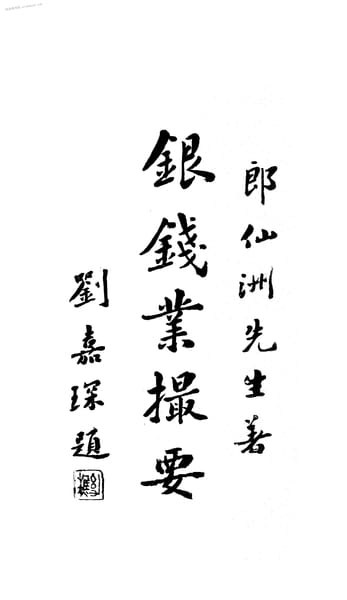 郎仙洲先生著
銀錢業撮要
劉嘉琛題